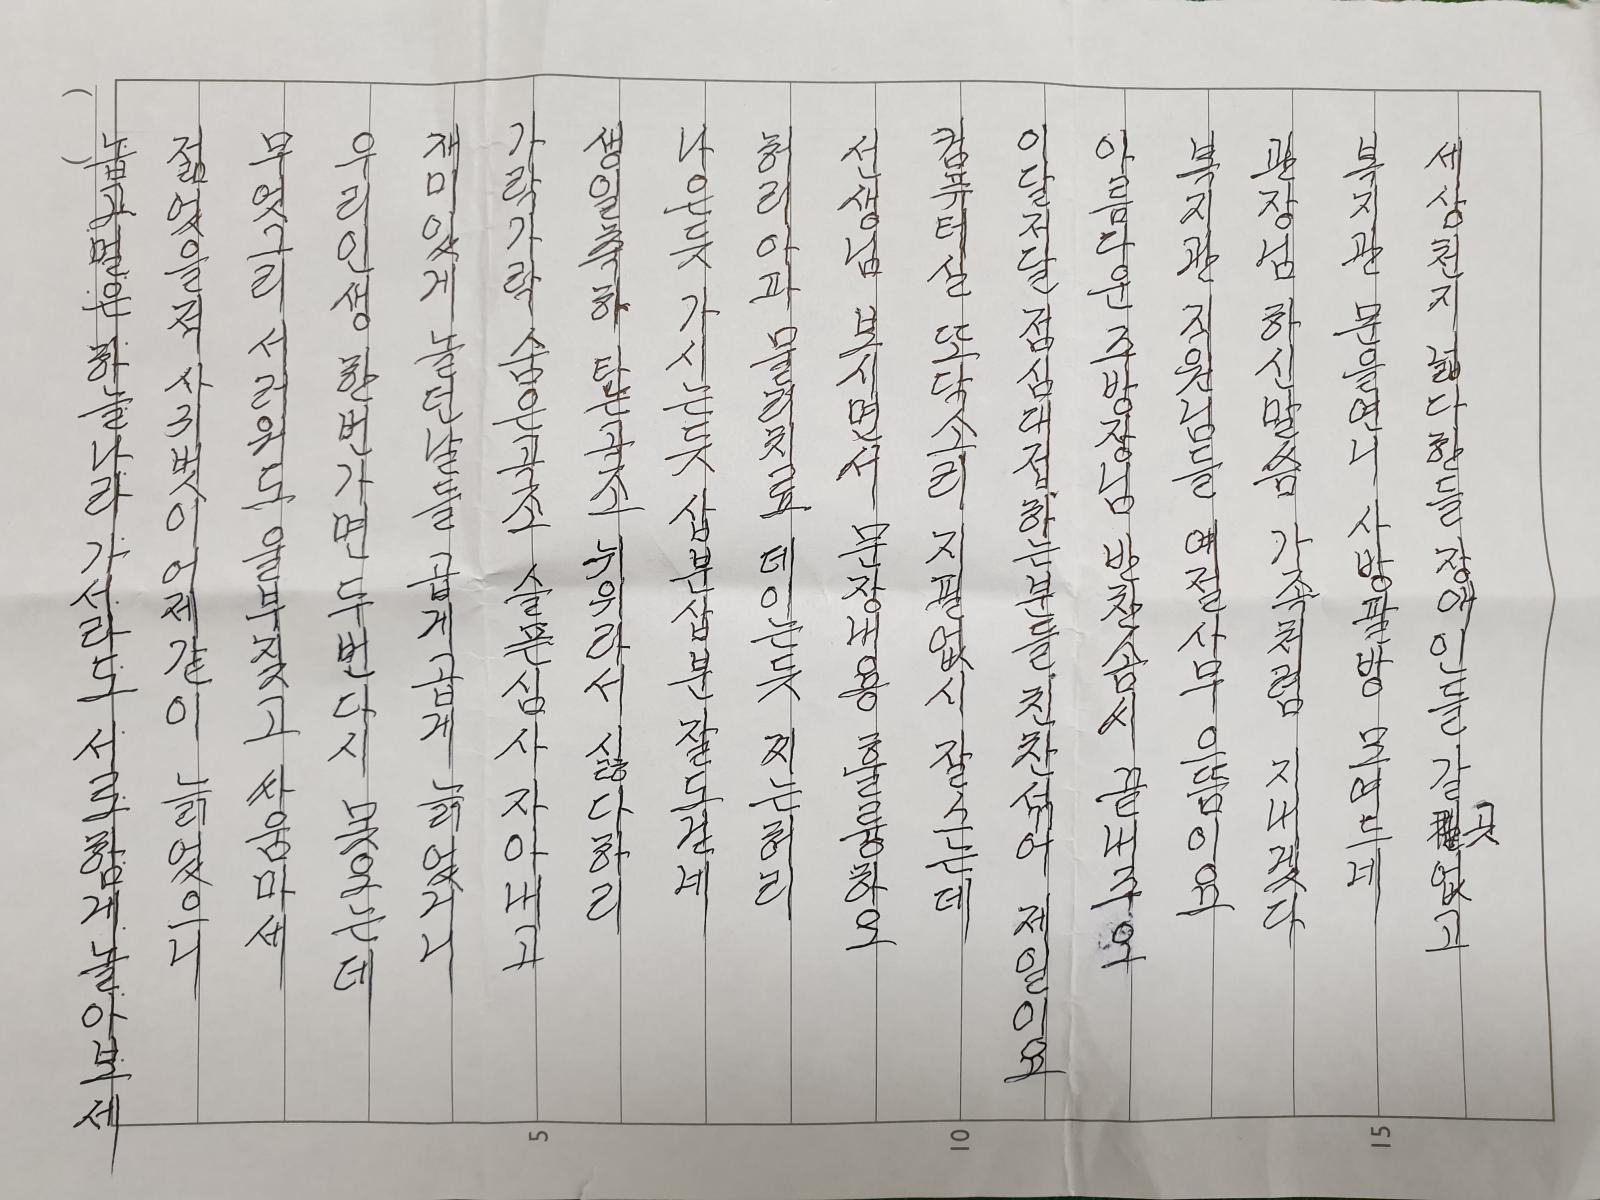 세상천지 넓다한들 장애인들 갈곳없고
복지관 문을연니 사방팔방 모여드네
관장님 하신말씀 가족처럼 지내겠다
복지관 직원님들 예절사무 으뜸이요
아름다운 주방장님 반찬솜시 끝내주오
이달저달 점심대접하는분들 친찬섞어 제일이요
컴퓨터실 또닥소리 지필없시 잘스는데
선생님 보시면서 문장내용 훌륭하오
허리아파 물려치료 데이는듯 찌는허리
나은듯 가시는듯 삽분삽분 잘도걷네
생일축하 타는곡조 누위라서 싫다하리
가락가락 숨은곡조 슬픈심사 자아내고
재미있게 놀던날들 곱게곱게 늙었거니
우리인생 한번가면 두번다시 못오는데
무엇그리 서러워도 울부짖고 싸움마세
젊었을적 사귀벗이 어제같이 늙었으니
높고멀은 하늘나라 가서라도 서로함게 놀아보세
5
10
15